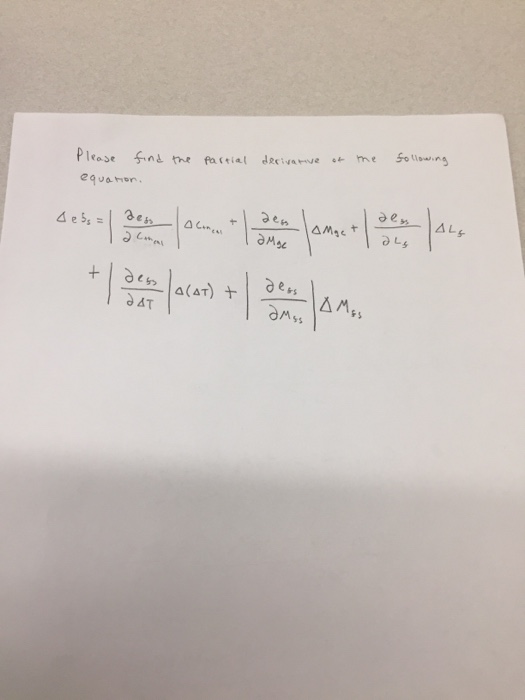 Please find the partial derivative of the following
equation.
Δe_ss = | ∂e_ss / ∂C_m,cal | ΔC_m,cal + | ∂e_ss / ∂M_gc | ΔM_gc + | ∂e_ss / ∂L_f | ΔL_f
+ | ∂e_ss / ∂ΔT | Δ(ΔT) + | ∂e_ss / ∂M_ss | ΔM_ss